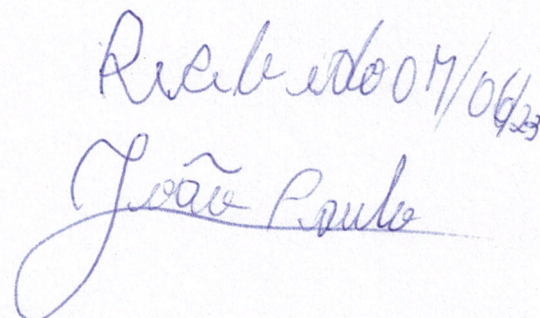 Recebido 07/06/23
João Paulo